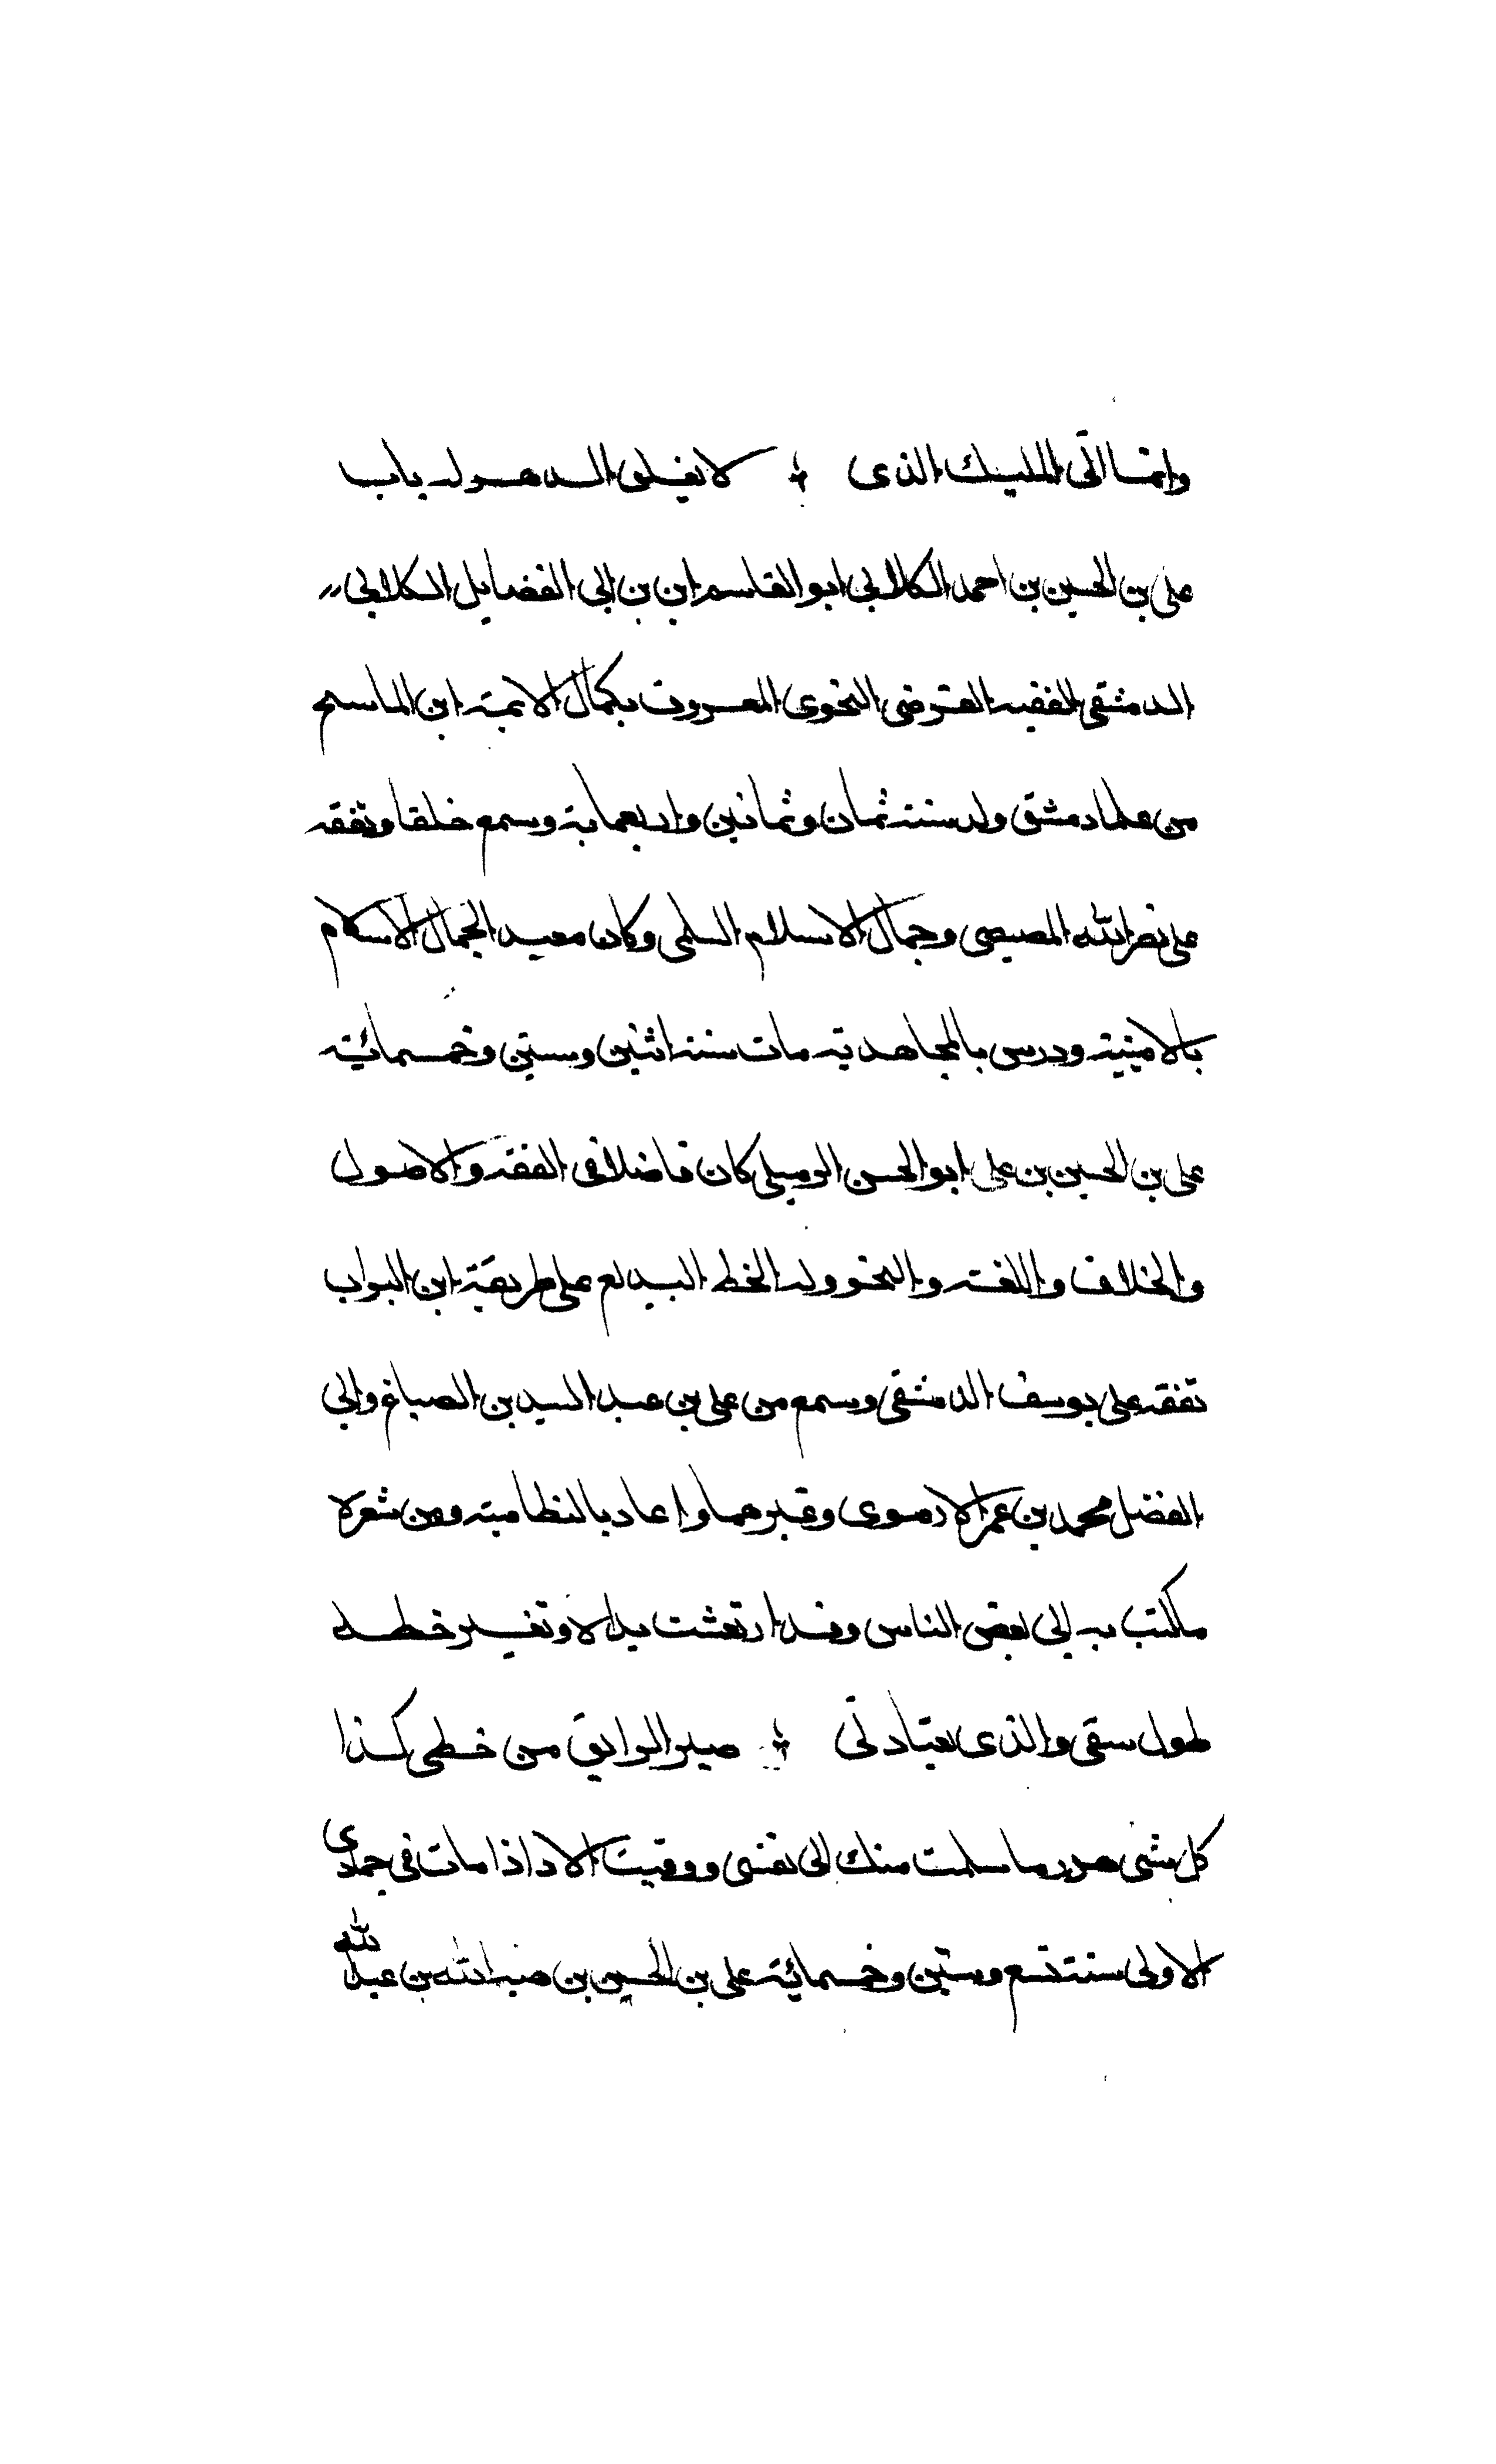 وانما الق المليك الذى ؛ لا يغلق الدهر له باب
على بن الحسين بن احمد الكلابي ابو القاسم ابن بن ابى الفضايل الكلابى
الدمشقى الفقيه الفرضى النحوى المعروف بكمال الايمة ابن الماسح
من علما دمشق ولد سنة ثمان وثمانين واربعماية وسمع خلقا وتفقه
على نصر الله المصيصى وجمال الاسلام السلمى وكان معيد الجمال الاسلام
بالامينية ودرس بالمجاهدية مات سنة اثنين وستين وخمسمائة
على بن الحسين بن على ابو الحسن الرميلى كان فاضلا فى الفقه والاصول
والخلاف واللغة والنحو وله الخط البديع على طريقة ابن البواب
تفقه على يوسف الدمشقى وسمع من على بن عبد السيد بن الصباغ وابى
الفضل محمد بن عمر الارموى وغيرهما واعاد بالنظامية ومن شعره
ما كتب به الى بعض الناس وقد ارتعشت يداه وتغير خطه
طول سقمى والذى يعتادنى ؛ صير الرايق من خطى كذا
كل شى هدر ما سلمت منك لى نفسى ووقيت الاذا مات فى جمادى
الاولى سنة تسع وستين وخمسمائة على بن الحسين بن عبد الله